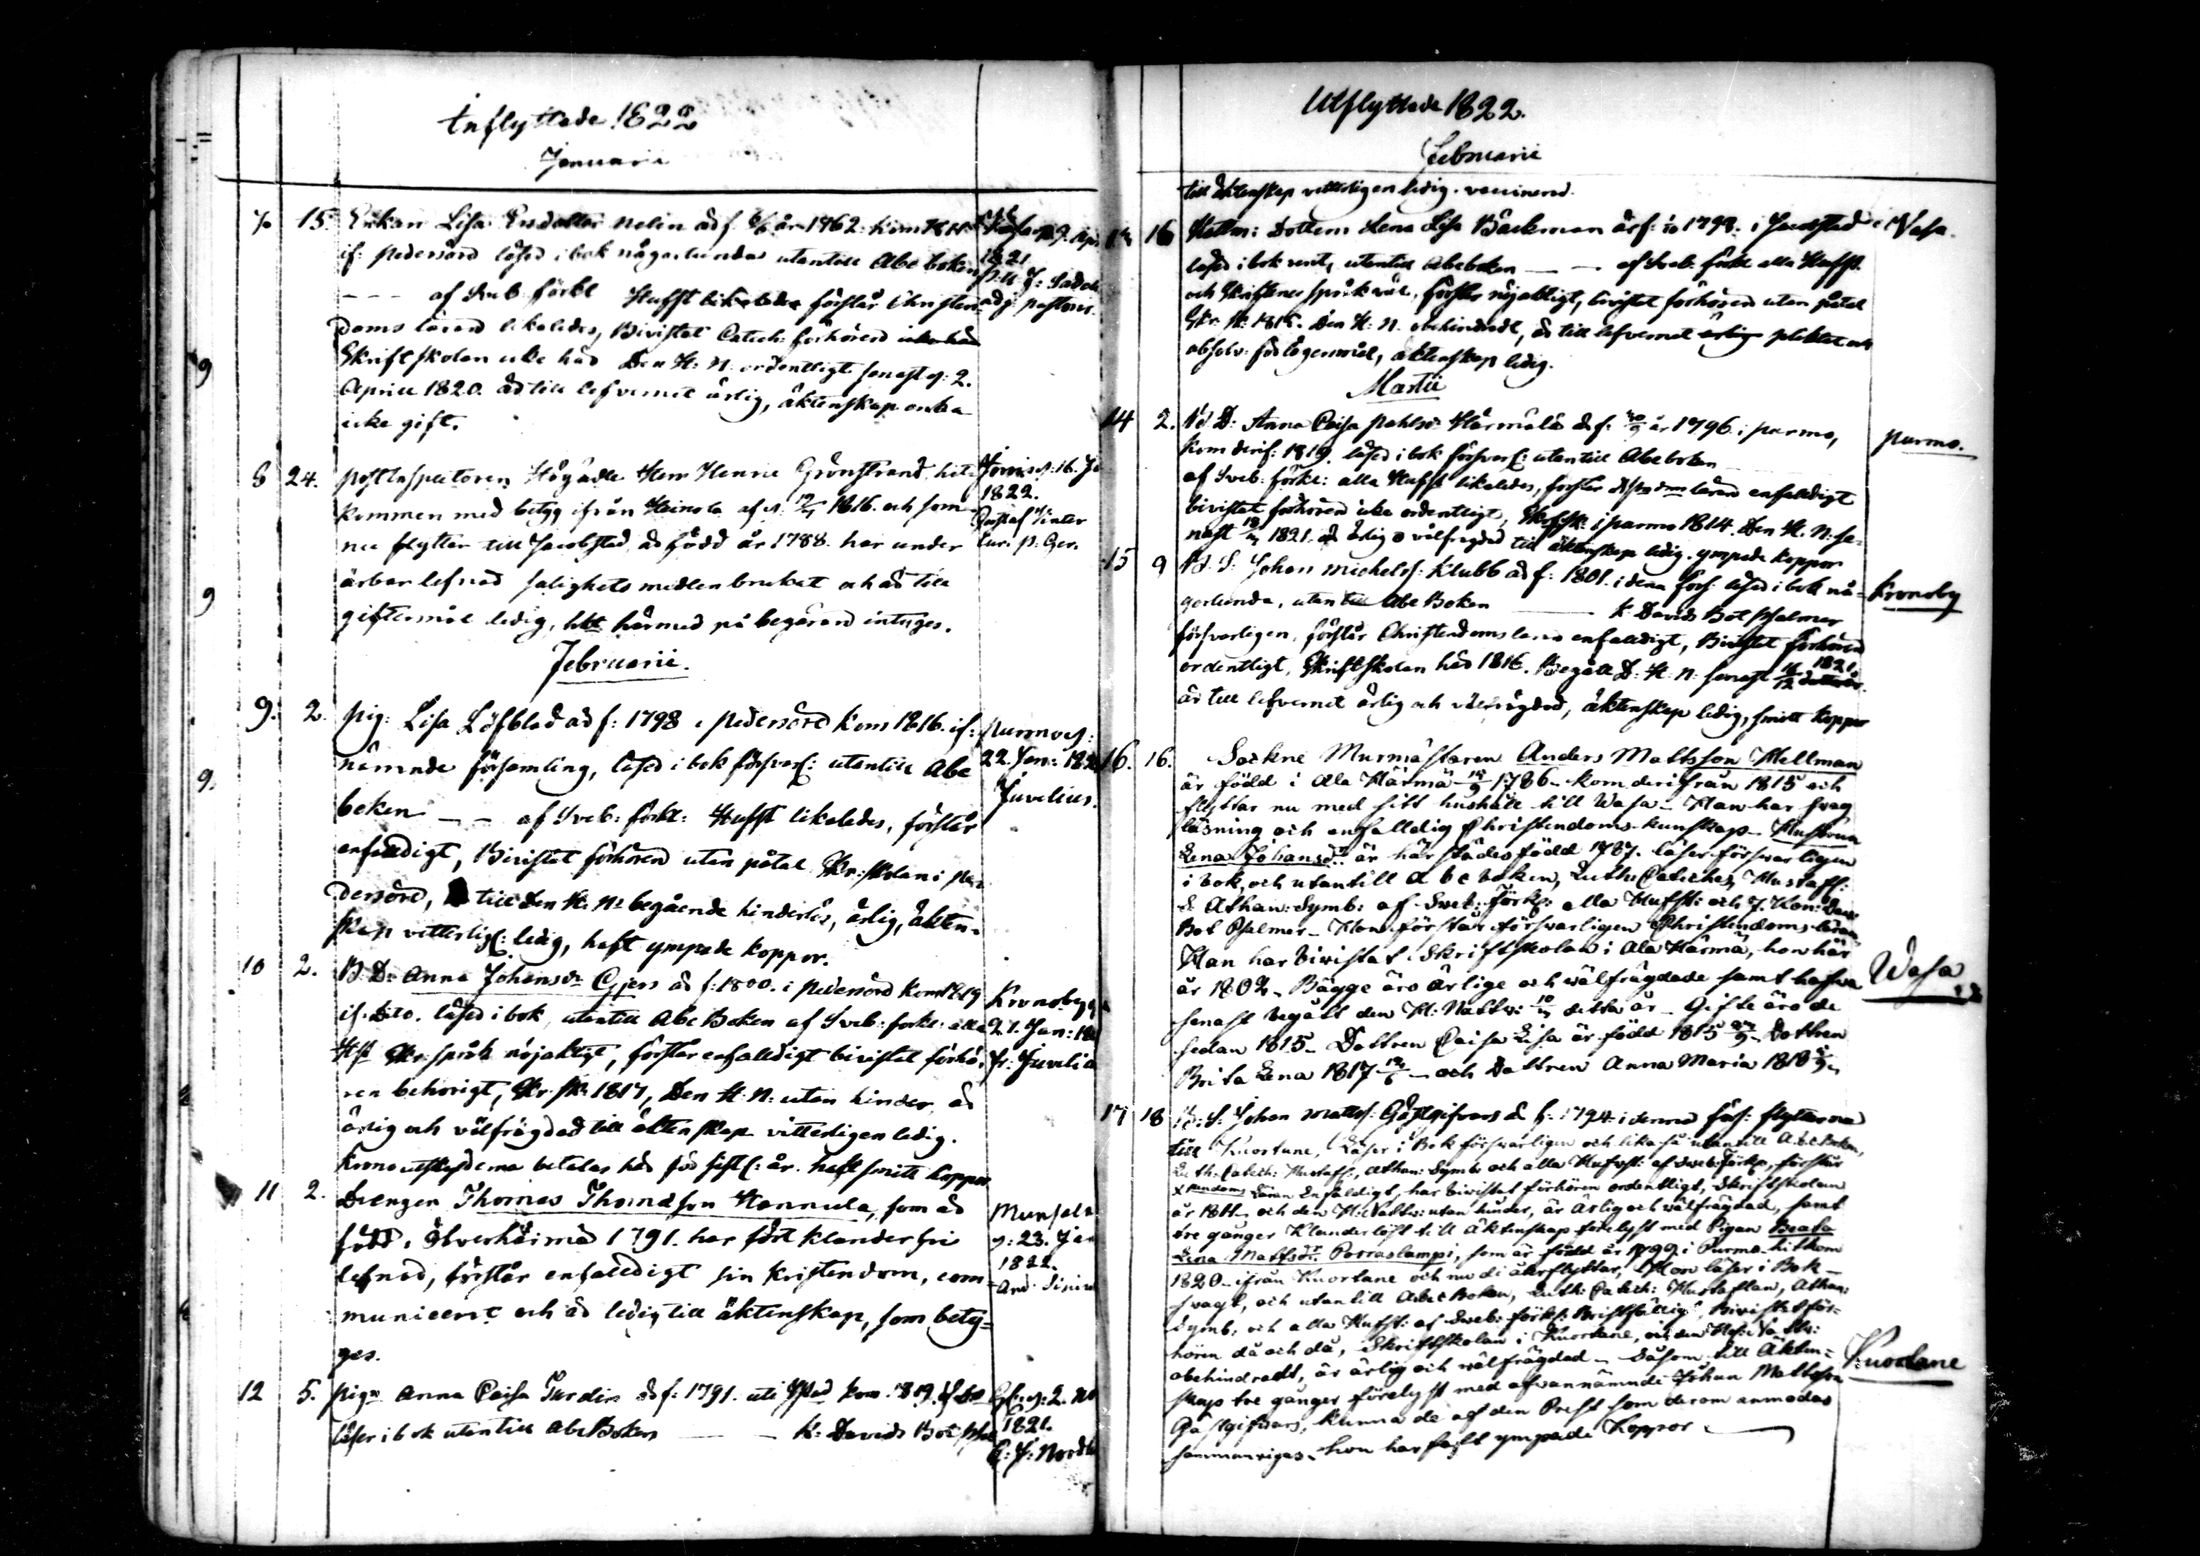 Inflyttade 1822
Januarii
15. Enkan Lisa Ersdotter Nelin är f. år 1762. kom
if: Pedersöre läser i bok någorlunda utantill Abc boken
– – – af Sveb: förkl Hufst förstår Christen-
doms läran likaledes, Bivistat Catech: förhören
Skriftskolan icke här Den H: N: ordentligt senast d: 2.
Aprill 1820. är till lefvernet ärlig, äktenskap enka
icke gift.
1821
adj. pastoris.
8 24. Postinspectoren Högädle Herr Henric Grönstrand hit-
kommen med betyg ifrån Heinola af d. 1816. och som
nu flyttar till Jacobstad är född år 1788. har under
ärbar lefnad salighets medlen brukat och är till
giftermål ledig, hvilket härmed på begäran intygas.
1822.
Gustaf
Cur. p. Ger.
Februarii.
9. 2. Pig: Lisa Löfblad är f: 1798 i Pedersöre kom 1816. if:
nämnde församling, läser i bok försvarl: utantill Abc
boken – – af Sveb: förkl: Hufst likaledes, förstår
enfaldigt, Bivistat förhören utan påtal Skr: skolan i Pe-
dersöre, till Den H: N: begående hinderlös, ärlig, äkten-
skap vitterligt: ledig, haft ympade koppor.
Purmo d:
22. Jan: 182
Juvelius.
10 2. B. D: Anna Johansdr Gjers är f: 1800. i Pedersöre kom 1819
if. Dito. läser i bok, utantill Abc Boken af Sveb: förkl: alla
Hfst Skr: språk nöjaktigt, förstår enfaldigt bivistat förhö-
ren behörigt, Skr: sk: 1817, Den H: N: utan hinder, är
ärlig och välfrägdad till äktenskap vitterligen ledig.
betalas här för sistl: år. haft smitt koppor
Kronoby d
21. Jan: 182
Fr. Juveliu
11 2. Drengen Thomas Thomasson Hannula, som är
född i Öfverhärmä 1791. har fört klanderfri
lefnad, förstår enfaldigt sin Kristendom, com-
municerat och är ledig till äktenskap, som bety-
gas.
Munsala
d: 23. Jan
1822.
And:
12 5. Pign Anna Caisa är f: 1791. uti kom 1819.
läser i bok utantill Abc Boken – – K: Davids Bot
d: 2. No
1821.
Utflyttade 1822.
Februarii
till äktenskap vitterligen ledig. vaccinerad.
16 Dottern Lena Lisa Bäckman är f: 1798. i Jacobstad
läser i bok rent, utantill Abcboken – – af Sveb: förkl alla Hufst.
och Skriftenes språk väl, förstår nöjaktigt, bivistat förhören utan påtal
Skr: sk: 1815. Den H: N. obehindradt, är till lefvernet ärlig
absolv: för lägersmål, äktenskap ledig.
Vasa.
Martii
14 2. Bd D: Anna Caisa Pahlsdr Härmälä är f. år 1796. i Purmo,
kom derif: 1819. läser i bok försvarl: utantill Abc boken
af Sveb: förkl: alla Hufst likaledes, förstår läran enfaldigt
bivistat förhören icke ordentligt, Skr:sk: i Purmo 1814. Den H. N: se-
nast 1821. är ärlig o välfrägdad till äktenskap ledig. ympade koppor
Purmo.
15 9 Bd. S: Johan Michelss: Klubb är f: 1801. i denna förs: läser i bok nå-
gorlunda, utantill Abc Boken – K: Davids Bot psalmer
försvarligen, förstår Christendoms läran enfaldigt, Bivistat förhören
ordentligt, Skriftskolan här 1816. Begått D: H: N: senast 1821
är till lefvernet ärlig och välfrägdad, äktenskap ledig, smitt koppor
Kronoby
16. 16. Sockne Murmästaren Anders Mattsson Hellman
är född i Ala Härmä 1786 – kom derifrån 1815 och
flyttar nu med sitt hushåll till Wasa – Han har svag
läsning och enfalldig Christendoms-kunskap – Hustrun
Lena Johansdr är här städes född 1787. läser försvarligen
i bok, och utantill Abc boken, Luth: Cateches, Hustafl:
& Athan: Symb: af Sveb: Förkl: alla Hufst: och 7. Kon: Dav:
Bot Psalmer – Hon förstår försvarligen Christendoms-läran
Han har bivistat Skriftskolan i Ala Härmä, hon här
år 1802 – Bägge äro ärlige och wälfrägdade samt hafva
senast begått den H: Nattv: detta år – Gifte äro de
sedan 1815 – Dottren Caisa Lisa är född 1815 – Dottren
Brita Lena 1817 – och Dottren Anna Maria 1818
Wasa
17 18 B: S: Johan Mattss: Gästgifvars är f: 1794 i denna förs: flyttar nu
till Kuortane, Läser i Bok försvarligen och lika så utantill Abc Boken,
Luth: Catech: Hustafl:, Athan: Symb: och alla Hufvst: af Sveb: Förkl, förstår
Xstendoms Läran Enfaldigt, har bivistat förhören ordentligt, Skriftskolan
år 1811, och den H: Nattv: utan hinder, är ärlig och wälfrägdad, samt
tre gånger klanderlöst till Äktenskap förelyst med Pigan Beata
Lena Mattsdr Porraslampi, som är född år 1799 i Purmo hitkom
1820 – ifrån Kuortane och nu dit återflyttar, Hon läser i Bok –
svagt, och utantill Abc Boken, Luth: Catech: Hustaflan, Athan:
Symb, och alla Hufst: af Sveb: förkl: Bristfälligt, Bivistat för-
hören då och då, Skriftskolan i Kuortane, och den H: Nattv:
obehindradt, är ärlig och wälfrägdad – Såsom till Äkten-
skap tre gånger förelyst med ofvannämnde Johan Mattsson
Gästgifvars, kunna de af den Prest som derom anmodas
sammanvigas. Hon har haft ympade Koppor
Kuortane